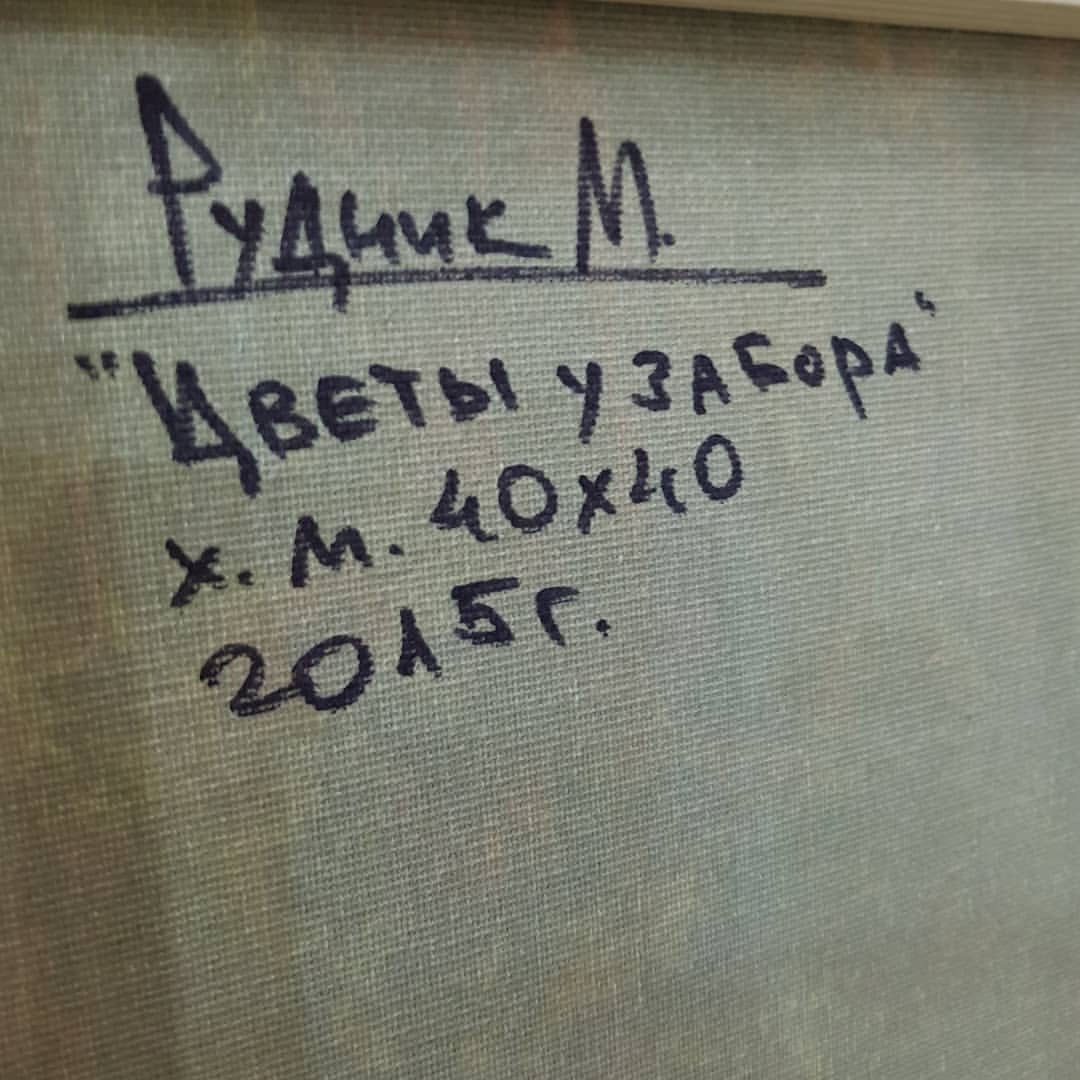 Рудник М.
"Цветы у забора"
х. м. 40х40
2015г.